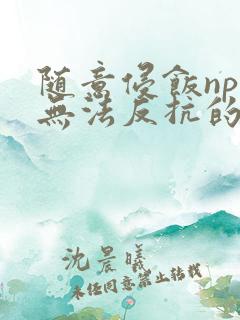 随意侵飯np
無法反抗的
沈晨曦
未经同意禁止转载